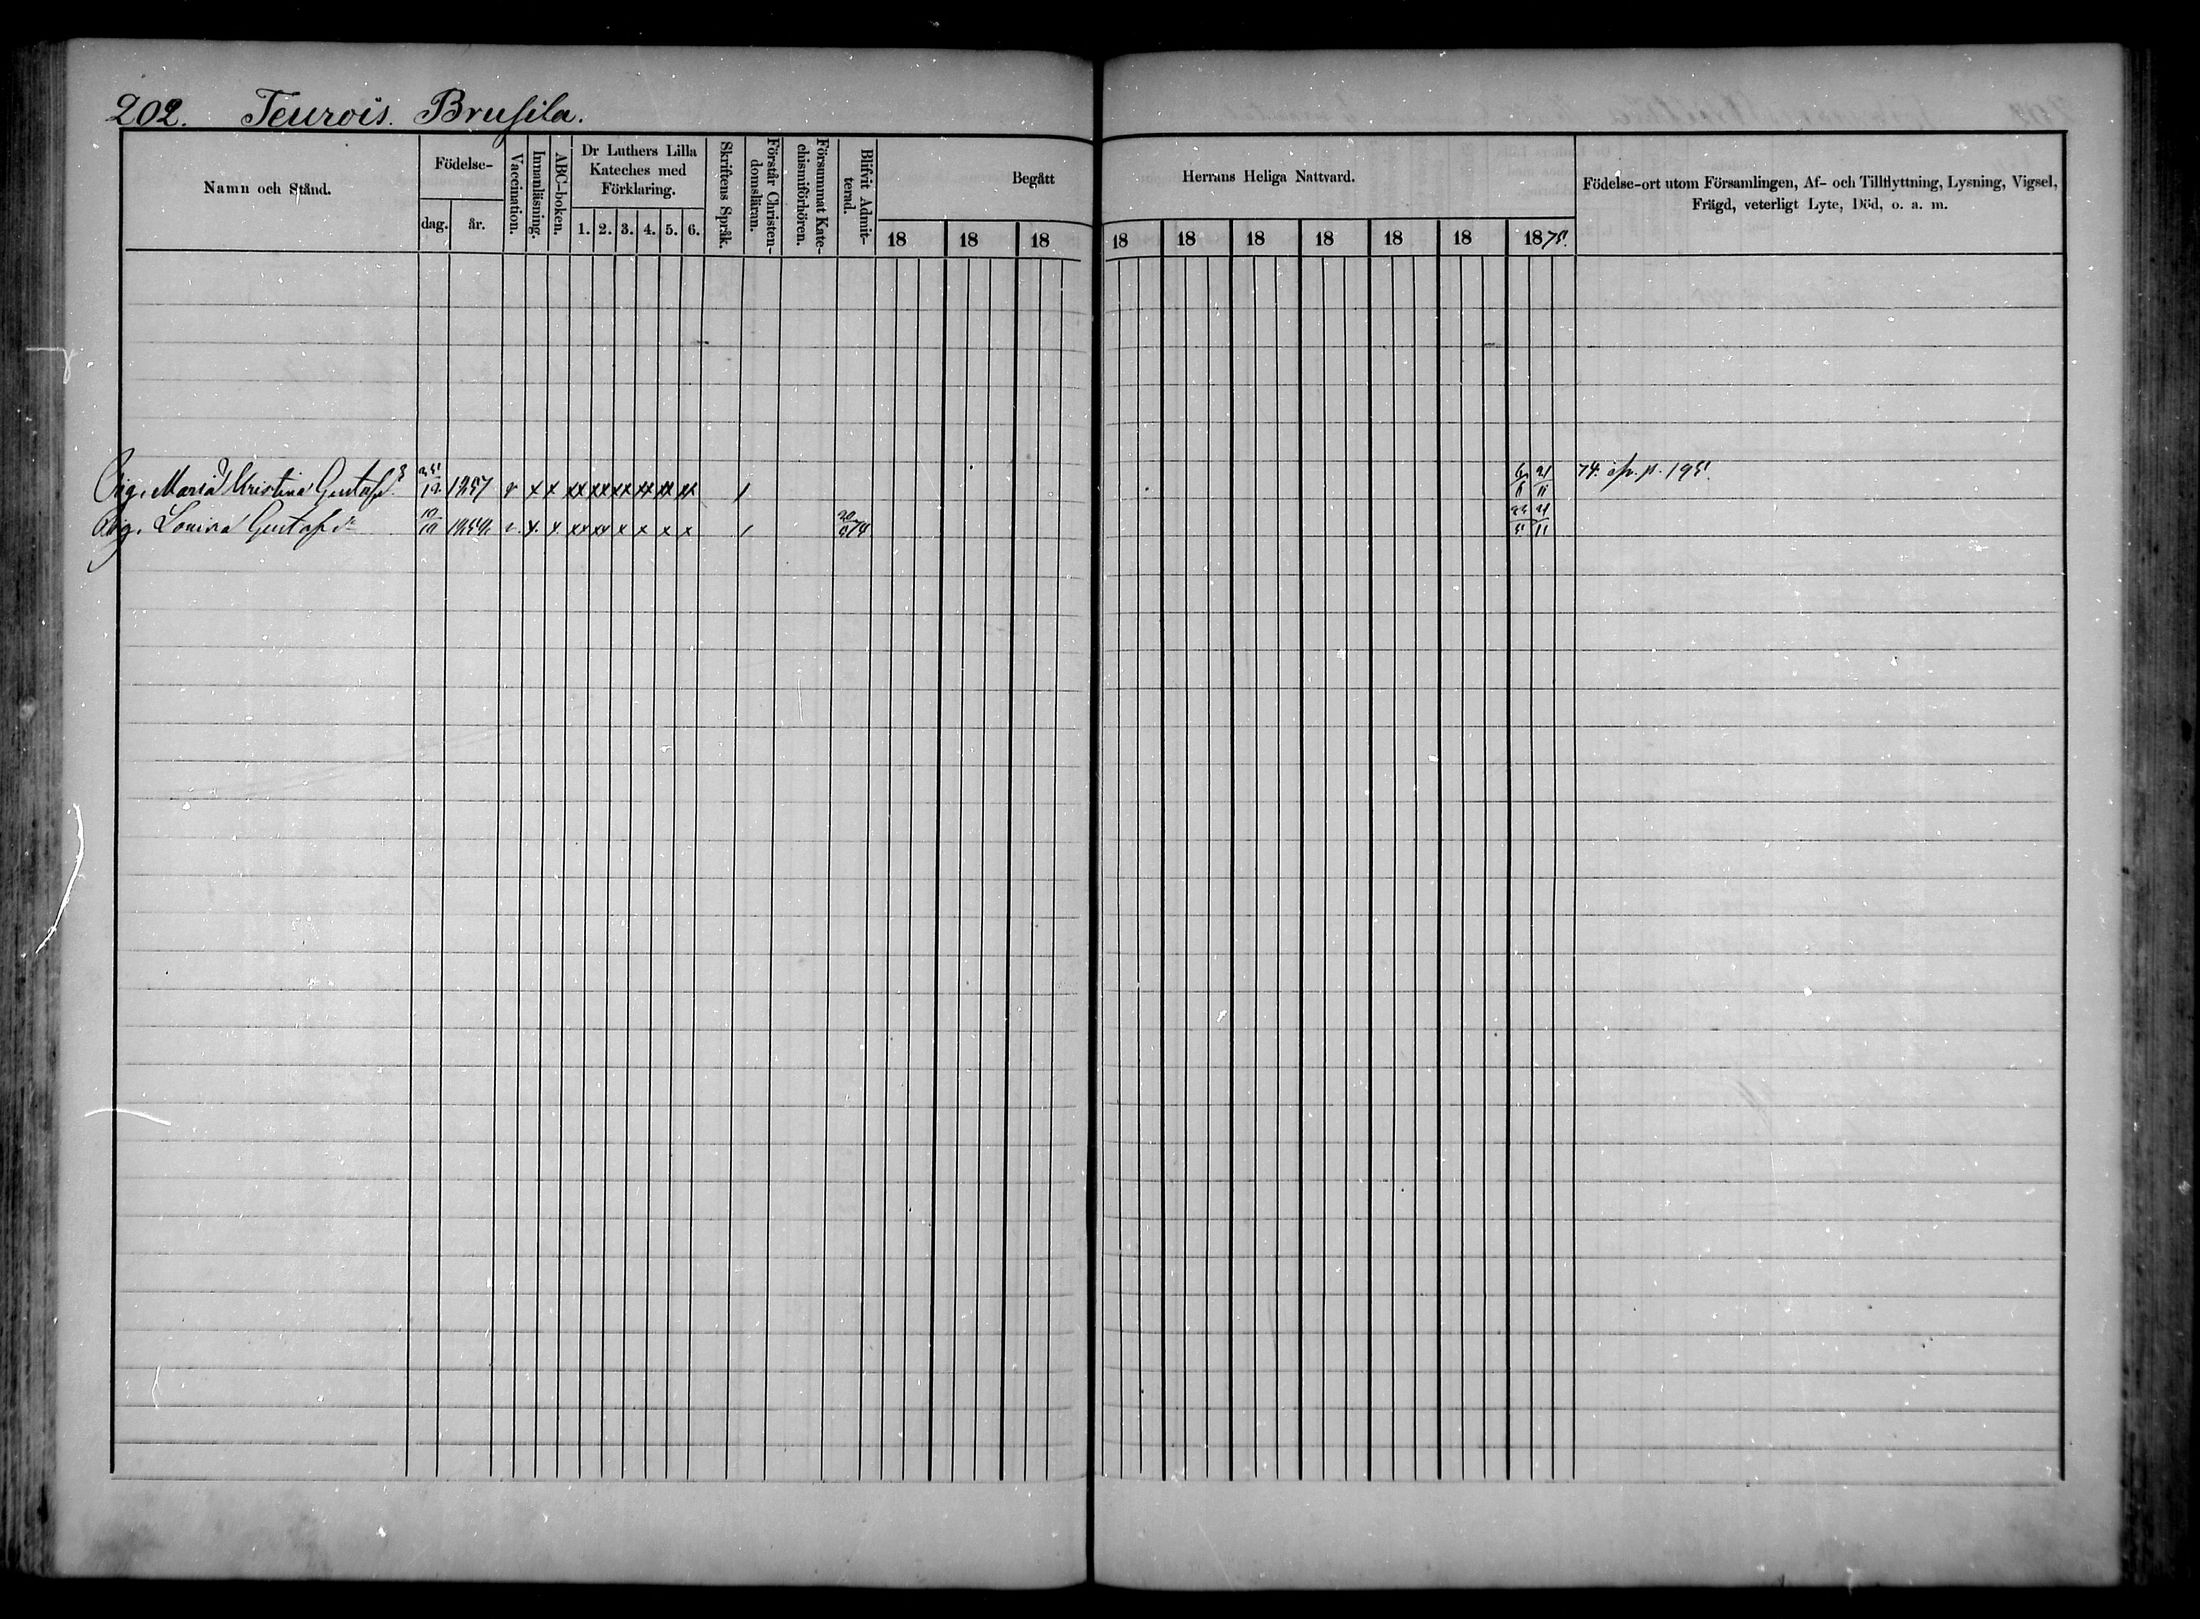 202. Teurois. Brusila.
Namn och Stånd.
Födelse-
dag. år.
Vaccination.
Innanläsning.
ABC-boken.
Dr Luthers Lilla
Kateches med
Förklaring.
1. 2. 3. 4. 5. 6.
Skriftens Språk.
Förstår Christen-
domsläran.
Försummat Kate-
chismiförhören.
Blifvit Admit-
terad.
Begått Herrans Heliga Nattvard.
18 18 18 18 18 18 18 18 18 1875.
Födelse-ort utom Församlingen, Af- och Tillflyttning, Lysning, Vigsel,
Frägd, veterligt Lyte, Död, o. a. m.
Pig. Maria Kristina Gustafsd. 25/12 1857 v x x xx xx xx xx xx xx / 6/6 21/11 74. p. 195.
Pig. Lovisa Gustafsdr 10/10 1859. v. x. x xx xx x x x x / 20/6 74 23/5 21/11